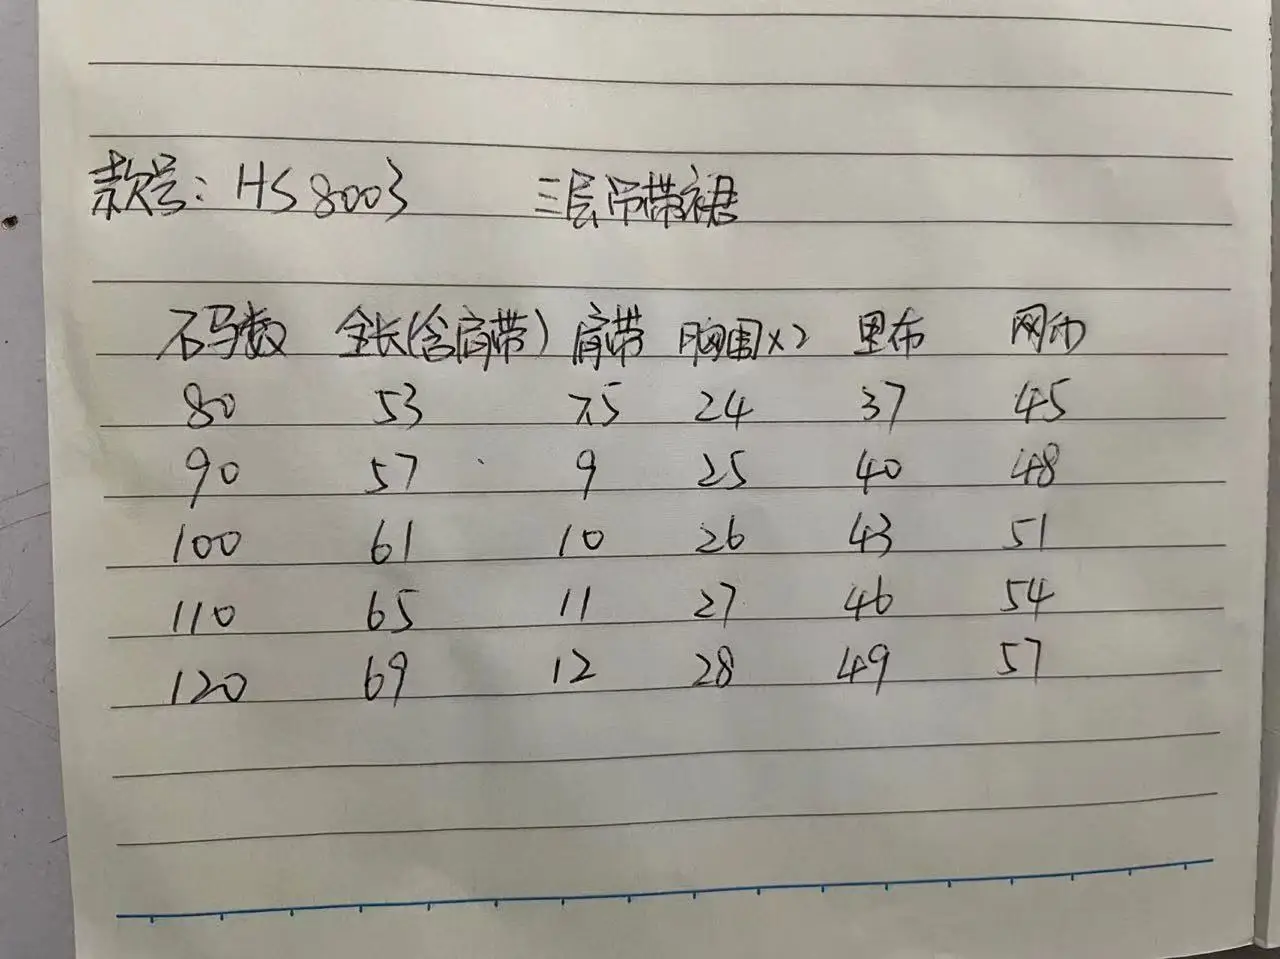 款号：HS8003 三层吊带裙
码数 全长(含肩带) 肩带 胸围×2 里布 网布
80 53 7.5 24 37 45
90 57 9 25 40 48
100 61 10 26 43 51
110 65 11 27 46 54
120 69 12 28 49 57